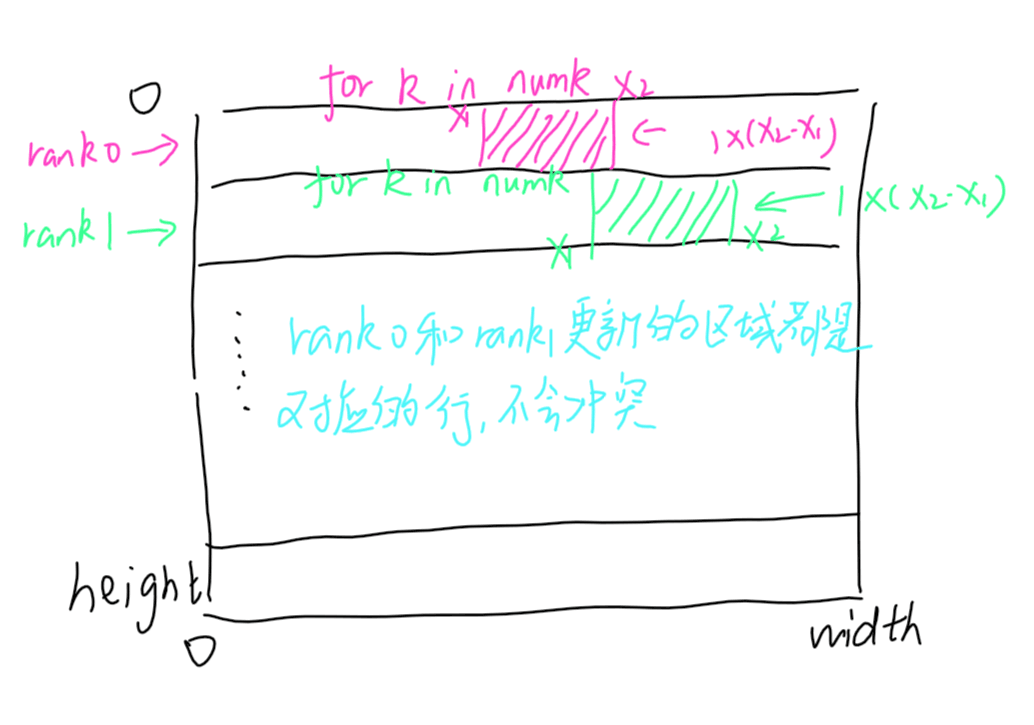 for k in numk
0
x1
x2
rank0
1x(x2-x1)
for k in numk
rank1
1x(x2-x1)
x1
x2
rank0和rank1更新的区域都是
对应的行,不会冲突
height
0
width